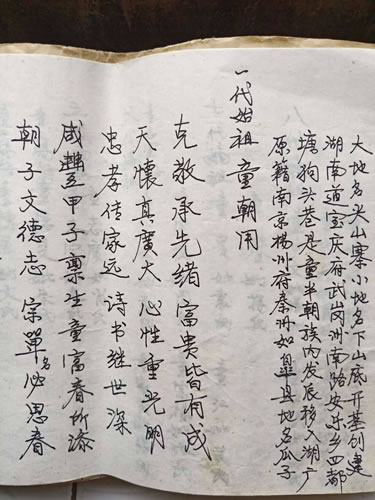 朝子文德志 宗單名必思春
咸豐甲子廪生童富春所添
忠孝传家远 诗书继世深
天懷真廣大 心性重光明
克敬承先绪 富贵皆有成
一代始祖 童朝用
原籍南京揚州府秦洲如皋县地名瓜子
塘狗头巷是童半朝族内发辰移入湖广
湖南道宝庆府武岗洲南路安乐乡四都
大地名尖山寨小地名下山底开基创建